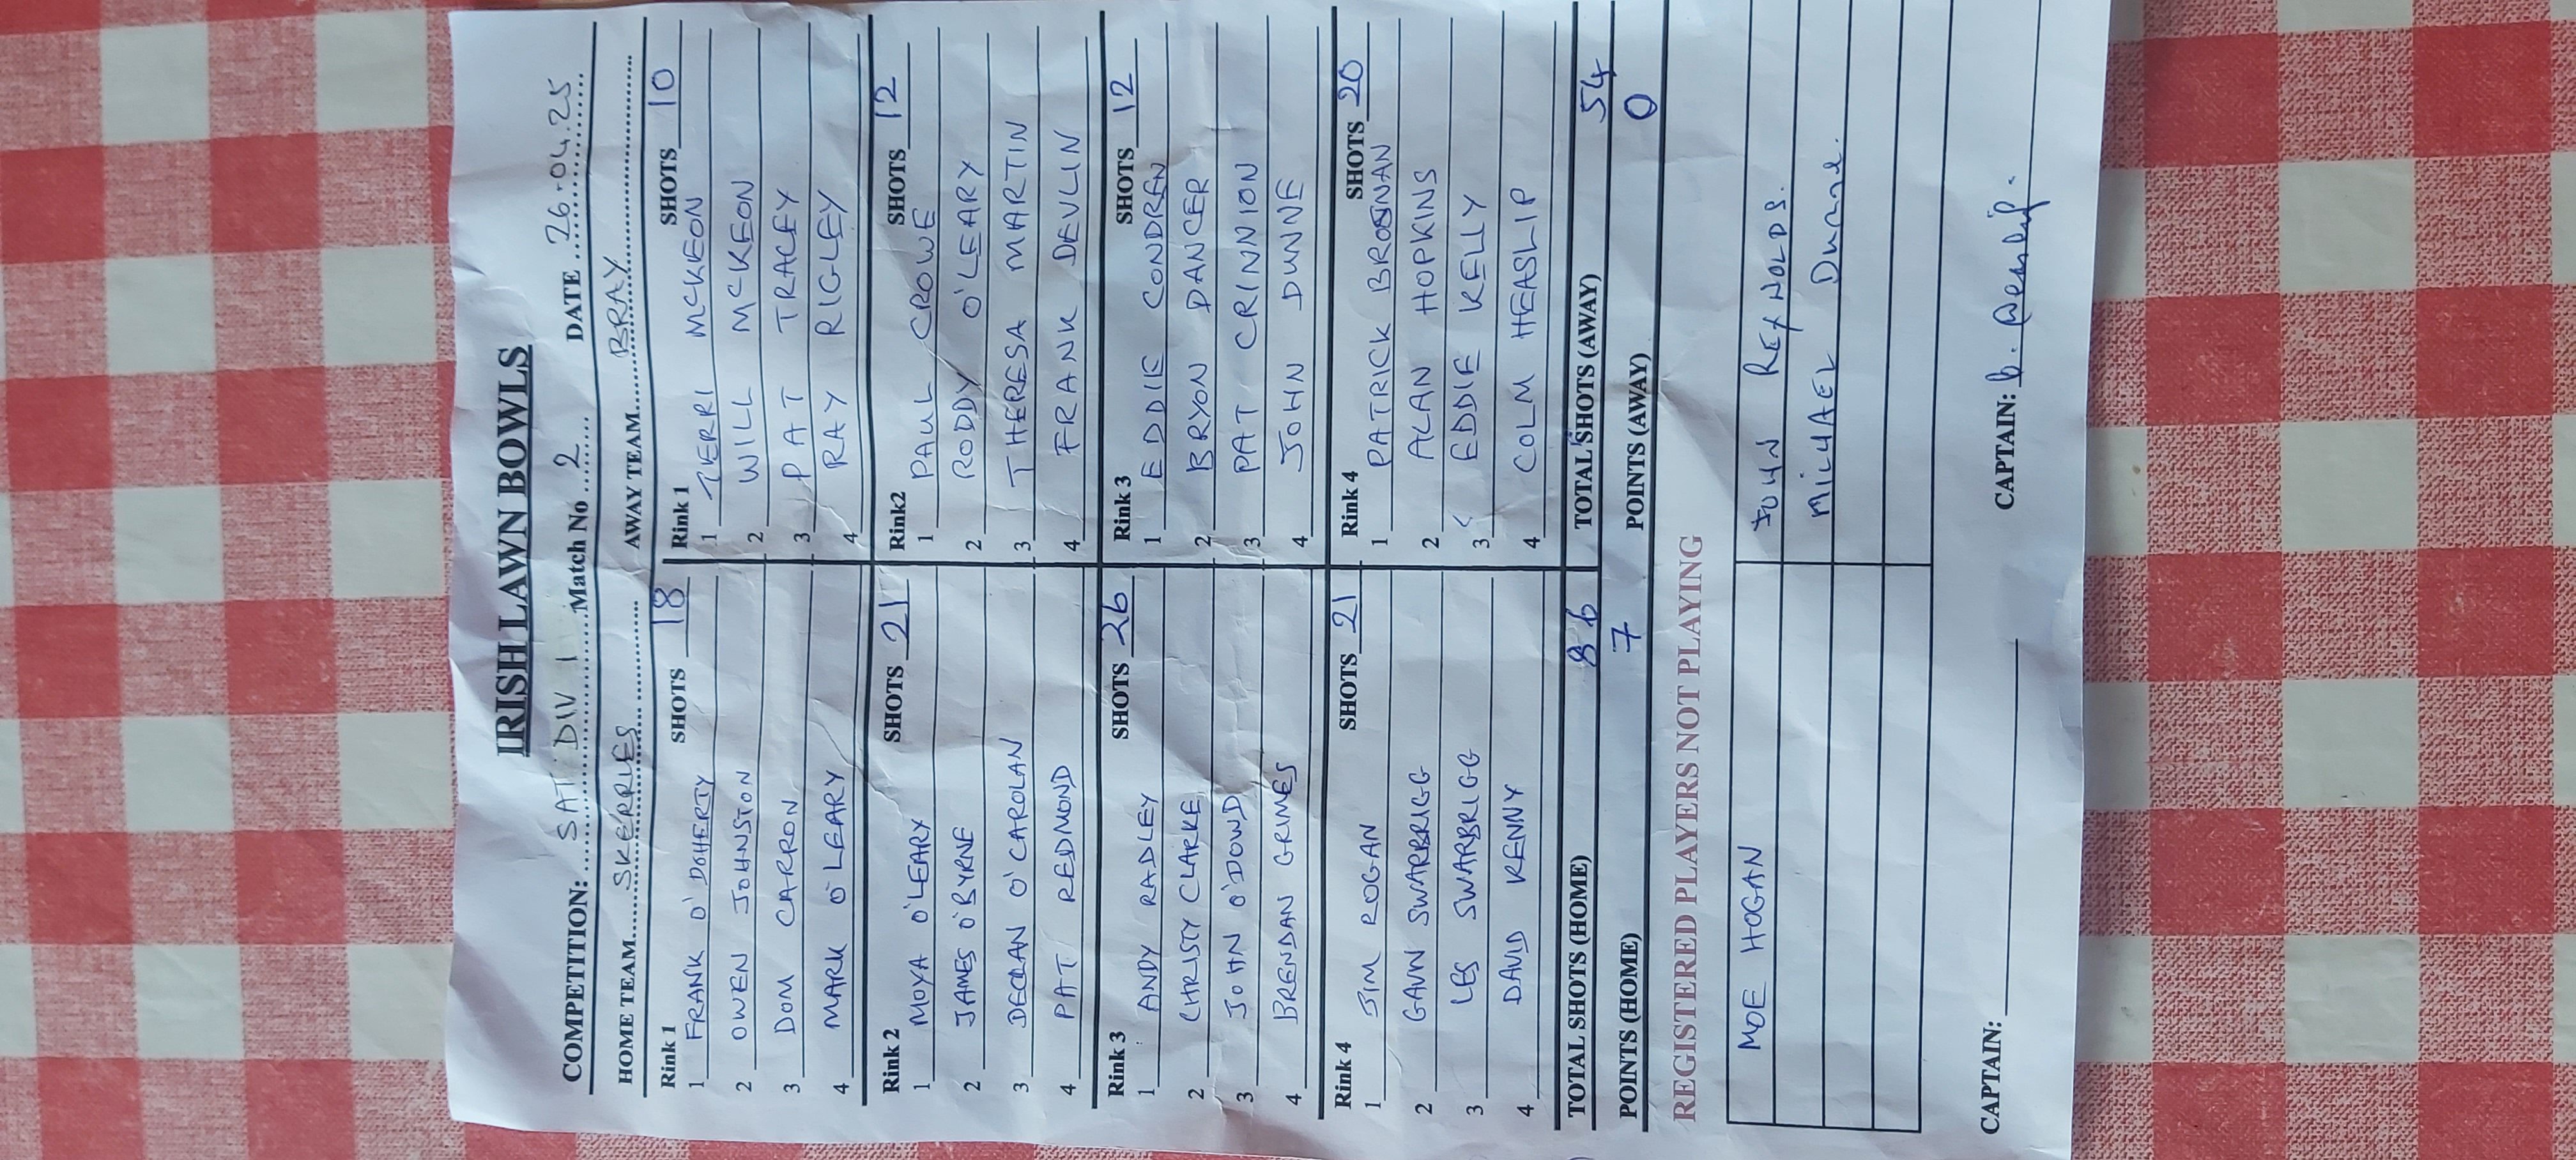 IRISH LAWN BOWLS
COMPETITION: SAT DIV 1 Match No 2 DATE 26.04.25
HOME TEAM SKERRIES AWAY TEAM BRAY
Rink 1 SHOTS 18 Rink 1 SHOTS 10
1 FRANK O'DOHERTY 1 TERRI MCKEON
2 OWEN JOHNSTON 2 WILL MCKEON
3 DOM CARRON 3 PAT TRACEY
4 MARK O'LEARY 4 RAY RIGLEY
Rink 2 SHOTS 21 Rink2 SHOTS 12
1 MOYA O'LEARY 1 PAUL CROWE
2 JAMES O'BYRNE 2 RODDY O'LEARY
3 DECLAN O'CAROLAN 3 THERESA MARTIN
4 PAT REDMOND 4 FRANK DEVLIN
Rink 3 SHOTS 26 Rink 3 SHOTS 12
1 ANDY RADLEY 1 EDDIE CONDREN
2 CHRISTY CLARKE 2 BRYON DANCER
3 JOHN O'DOWD 3 PAT CRINNION
4 BRENDAN GRIMES 4 JOHN DUNNE
Rink 4 SHOTS 21 Rink 4 SHOTS 20
1 JIM ROGAN 1 PATRICK BROSNAN
2 GAVIN SWARBRIGG 2 ALAN HOPKINS
3 LES SWARBRIGG 3 EDDIE KELLY
4 DAVID KENNY 4 COLM HEASLIP
TOTAL SHOTS (HOME) 86 TOTAL SHOTS (AWAY) 54
POINTS (HOME) 7 POINTS (AWAY) 0
REGISTERED PLAYERS NOT PLAYING
MOE HOGAN JOHN REYNOLDS.
MICHAEL Dunne.
CAPTAIN: CAPTAIN: